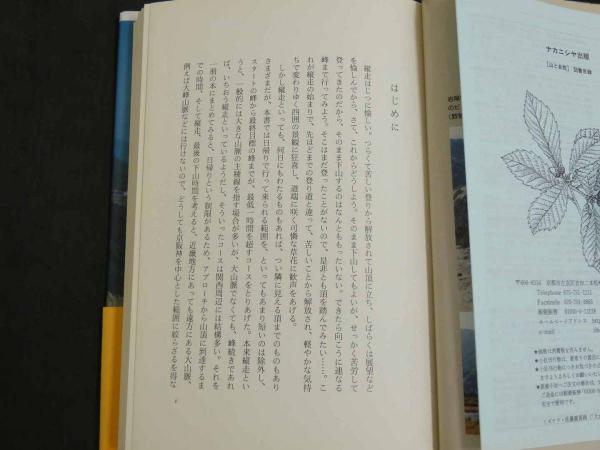 はじめに
縦走はじつに愉しい。つらくて苦しい登りから解放されて山頂に立ち、しばらくは展望など
を愉しんでから、さて、これからどうしよう。そのまま下山してもよいが、せっかく苦労して
登ってきたのだから、そのまま下山するのはなんとももったいない。できたら向こうに連なる
峰まで行ってみよう。そこはまだ登ったことがないので、是非とも頂を踏んでみたい……。こ
れが縦走の始まりで、先ほどまでの登り道と違って、苦しいことから解放され、軽やかな気持
ちで変わりゆく四囲の景観に狂喜し、道端に咲く可憐な草花に歓声をあげる。
しかし縦走といっても、何日にもわたるものもあれば、つい隣に見える頂までのものもあり
さまざまだが、本書では日帰りで行って来られる範囲を、といってもあまり短いのは除外し、
スタートの峰から最終目標の峰までが、最低一時間を超すコースをとりあげた。本来縦走とい
うと、一般的には大きな山脈の主稜線を指す場合が多いが、大山脈でなくても、峰続きであれ
ば、いちおう縦走といっているようだし、そういったコースは関西周辺には結構多い。それを
一冊の本にまとめてみると、日帰りという制限があるため、アプローチから山頂に到達するま
での時間、そして縦走、最後の下山時間を考えると、近畿地方にあっても遠方にある大山脈、
例えば大峰山脈などには行けないので、どうしても京阪神を中心とした範囲に絞らざるを得な
ナカニシヤ出版
[山と自然] 図書目録
〒606-8316 京都市左京区吉田二本松
Telephone 075-751-1211
Facsimile 075-751-2665
郵便振替
ホームページアドレス